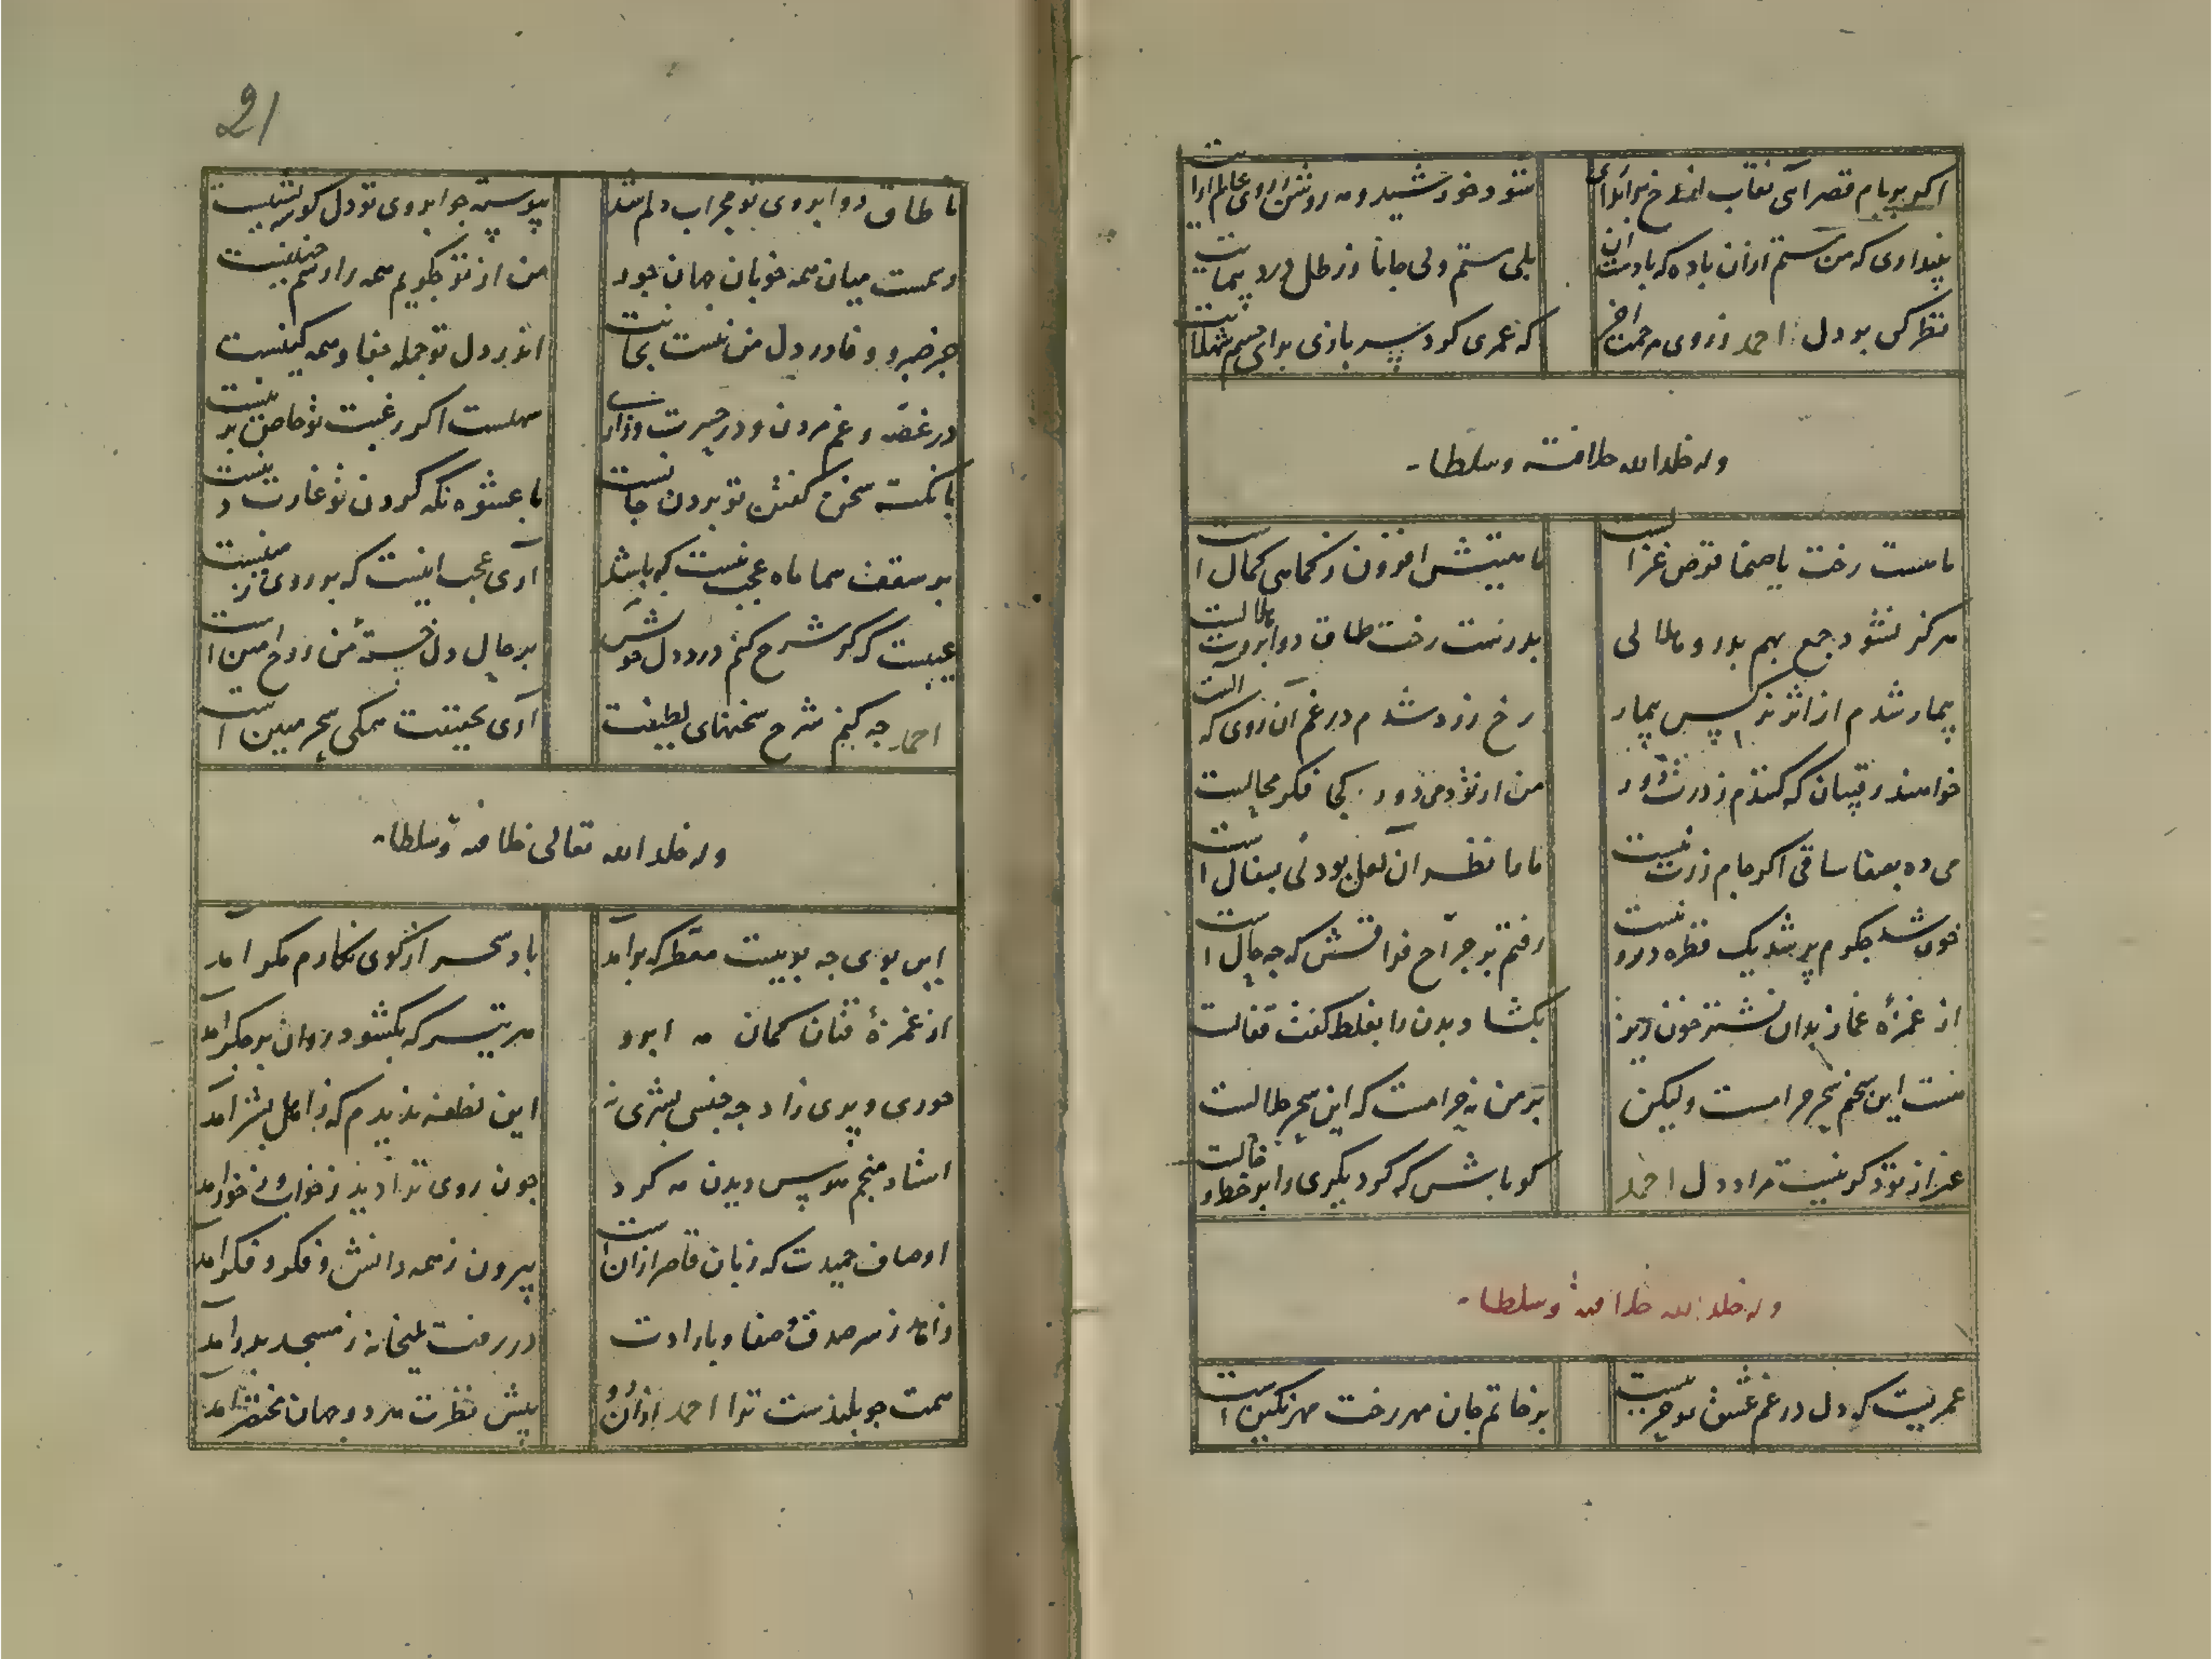 اکر بر بام قصر آئی نقاب از رخ براندازی
شود خورشید و مه روشن ازان روی عالم آرایت
پنداری که من مستم ازان باده که بادست آن
بلی مستم ولی جانا ز رطل درد پیمایت
نظر کن بر دل احمد ز روی مرحمت آخر
که عمری کرد سربازی برای چشم شهلایت
وله خلد الله خلافته وسلطانه
تا هست رخت یا صنما قرص غزالیست
ماهیتش افزون ز کماهی کمال است
هرکز نشود جمع بهم بدر و هلالی
بدرست رخت طاق دو ابروت هلالیست
بیمار شدم از اثر نرکس بیمار
رخ زرد شدم در غم آن روی که آلست
خواهند رقیبان که کنندم ز درت دور
من از تو دمی دور کجا فکر محالیست
می ده بصفا ساقی اکر جام زرت نیست
ما را نظر آن لعل بود نی بسفال است
خون شد جکرم پر شد یک قطره درو نیست
رفتم بر جراح فراقش که چه حال است
از غمزه غماز بدان نشتر خون ریز
بکشاد بدن را بغلط کفت قفالست
هست این سخنم سحر حرامست ولیکن
بر من نه حرامست که این سحر حلالست
غیر از تو ذکر نیست مراد دل احمد
کو باش که کر دیکری را بر خط و خالست
وله خلد الله خلافته وسلطانه
عمریست که دل در غم عشق تو حزین است
بر خاتم جان مهر رخت مهر نکین است
21
تا طاق دو ابروی تو محراب دلم شد
پیوسته چو ابروی تو دل کوشه نشین است
وهمست میان همه خوبان جهان جور
من از تو چکویم همه را رسم چنین است
جز صبر و وفا در دل من نیست نکارا
اندر دل تو جمله جفا و همه کینست
در غصه و غم مردن و در حسرت و زاری
سهلست اکر رغبت تو خاص برینست
با نکته سخن کفتن تو بردن جانست
با عشوه نکه کردن تو غارت دینست
بر سقف سما ماه عجب نیست که باشد
آری عجب اینست که بر روی زمینست
عیبست که کر شرح کنم درد دل خویش
بر حال دل خسته من روح امین است
احمد چه کنم شرح سخنهای لطیفت
آری بحقیقت همکی سحر مبین است
وله خلد الله تعالی خلافته وسلطانه
این بوی چه بوییست معطر که برآمد
باد سحر از کوی نکارم مکر آمد
از غمزهٔ فتان کمان مه ابرو
هر تیر که بکشود روان بر جکر آمد
حوری و پری زاد چه جنسی بشری نه
این نطفه ندیدم که ز اهل بشر آمد
استاد منجم هوس دیدن مه کرد
چون روی ترا دید ز خواب و ز خور آمد
اوصاف حمیدت که زبان قاصر ازان است
بیرون ز همه دانش و فکر و فکر آمد
زاهد ز سر صدق و صفا و بارادت
در رفت بمیخانه ز مسجد بدر آمد
همت چو بلندست ترا احمد ازان رو
پیش نظرت هر دو جهان مختصر آمد